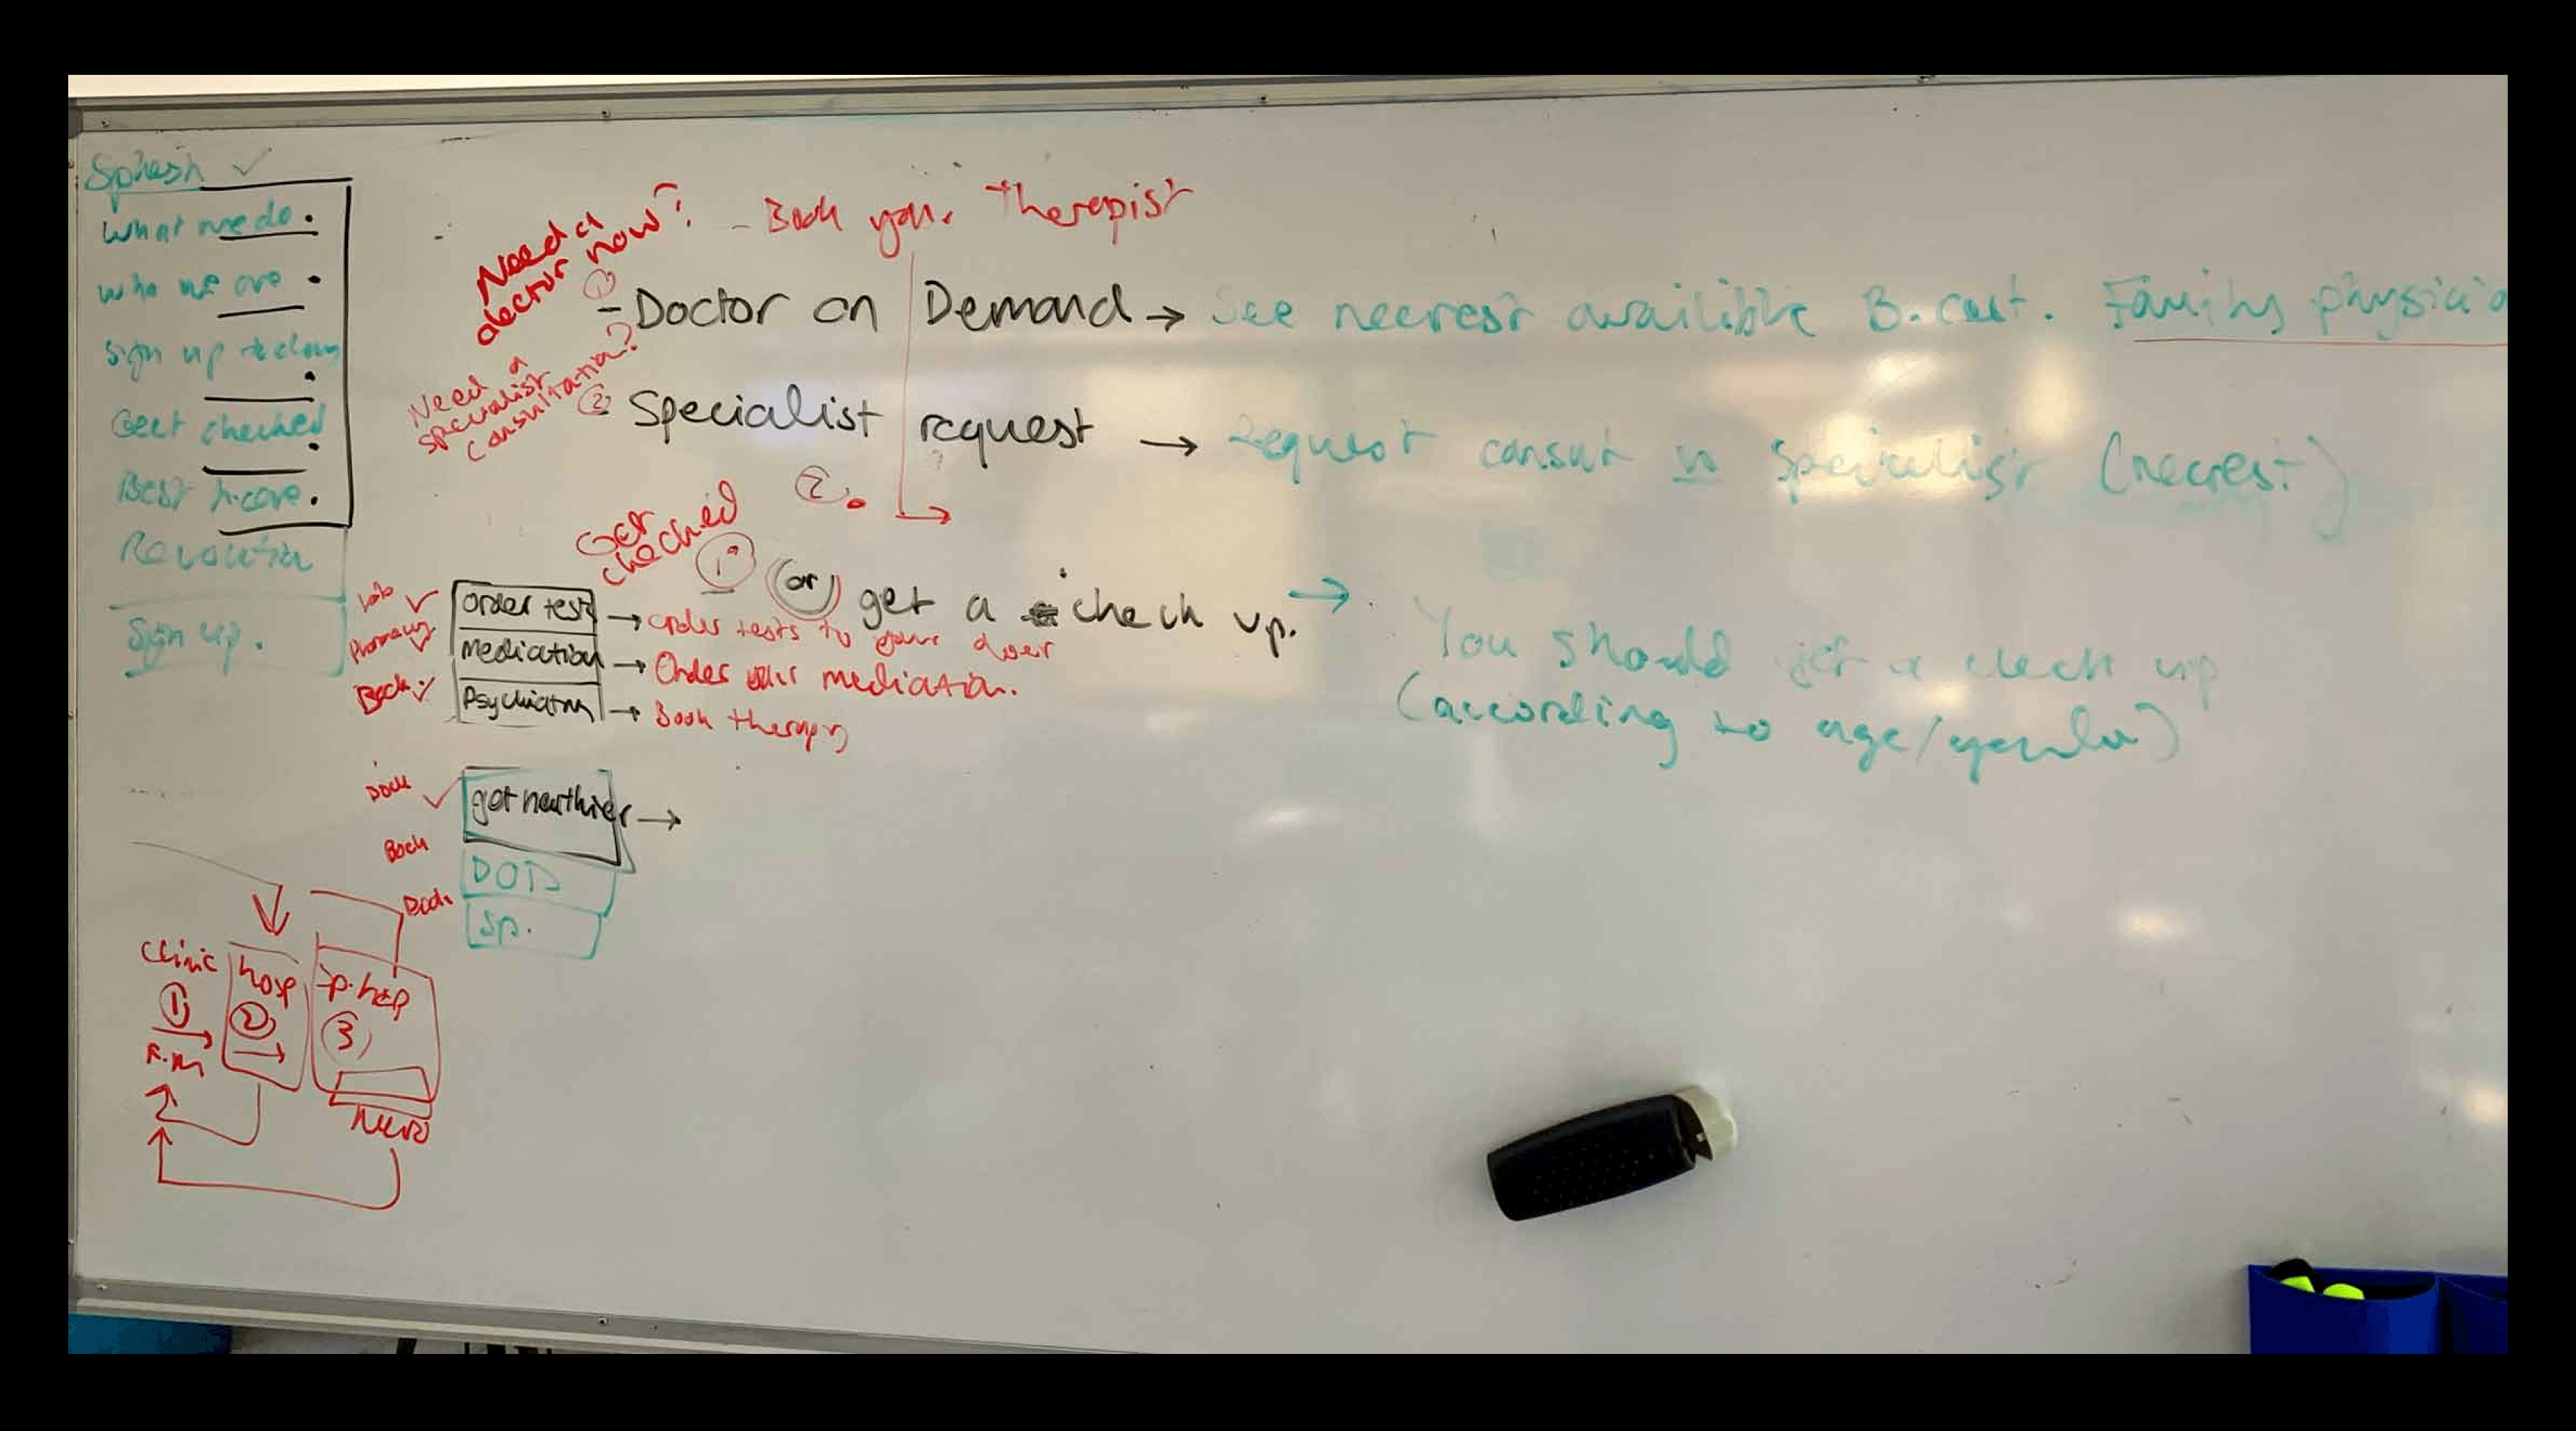 Splash ✓
What we do.
Who we are.
Sign up
Get checked
Best h.care.
Revolution
Sign up.
Need a
doctor now?
- Book your Therapist
① - Doctor on Demand → See nearest availible B. cert. Family physicia
Need a
specialist
consultation?
② Specialist request → Request consult w specialist (nearest)
②.
Get
checked
① (or) get a check up. →
You should get a check up
(according to age/gender)
Labs ✓ Order test → order tests to your door
Pharmacy ✓ Medicution → Order your mediation.
Book ✓ Psychiatry → Book therapy
✓ get healthier →
Book DOD
Book Sp.
Clinic hosp
① ② ③
F.M